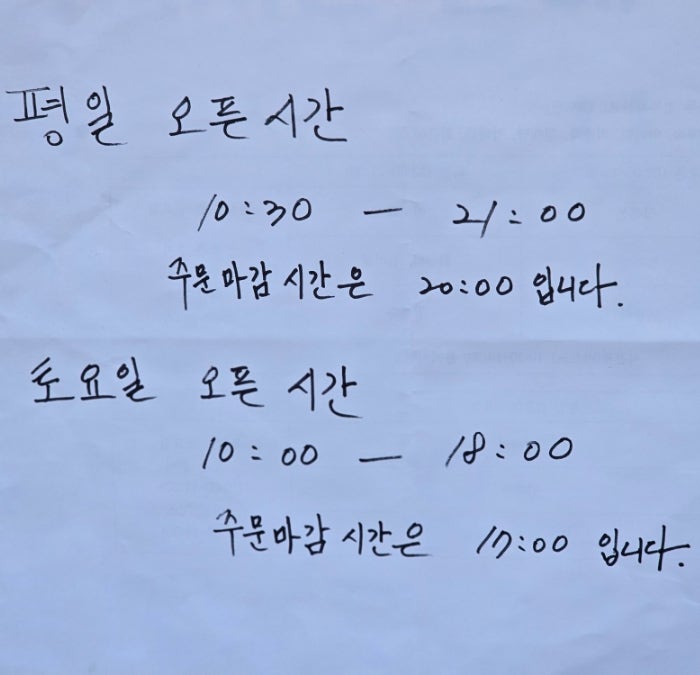 평일 오픈 시간
10:30 — 21:00
주문마감 시간은 20:00 입니다.
토요일 오픈 시간
10:00 — 18:00
주문마감 시간은 17:00 입니다.